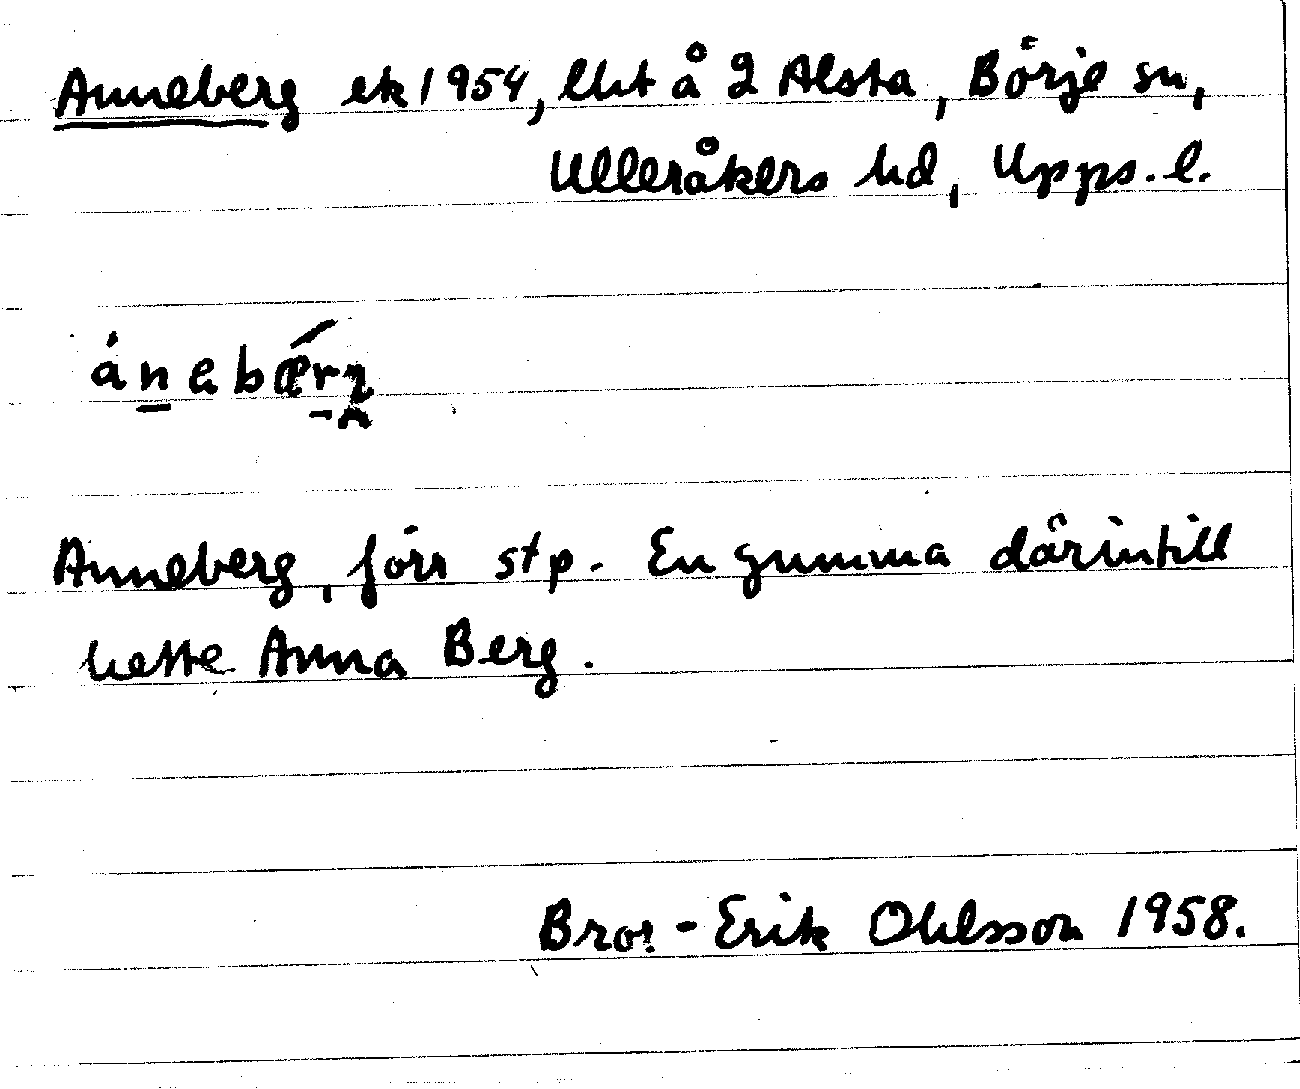 Anneberg ek 1954, lht å 2 Alsta, Börje sn,
Ulleråkers hd, Upps. l.
ánebǽrg
Anneberg, förr stp. En gumma därintill
hette Anna Berg.
Bror-Erik Ohlsson 1958.